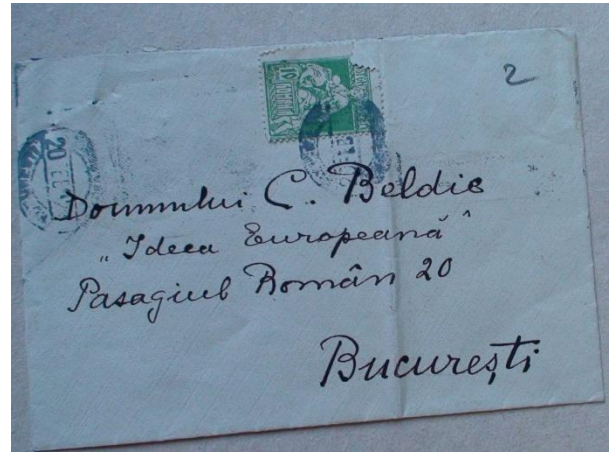 2
20
Domnului C. Beldie
"Ideea Europeană"
Pasagiul Român 20
București